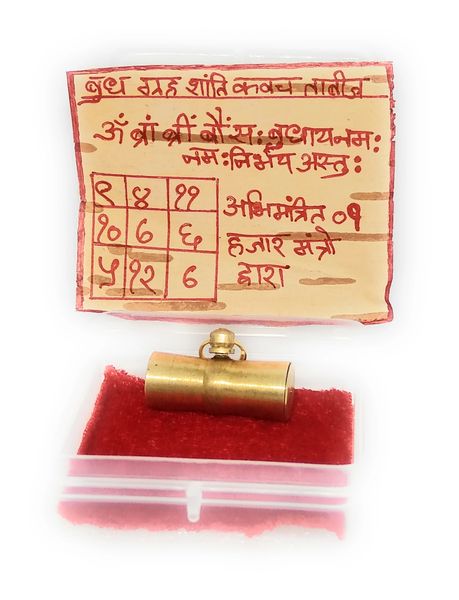 बुध ग्रह शांति कवच ताबीज
ॐ ब्रां ब्रीं बौं स: बुधाय नम:
नम: निर्भय अस्तु:
९ ४ ११
१० ७ ६
५ १२ ७
अभिमंत्रित ०१
हजार मंत्रो
द्वारा